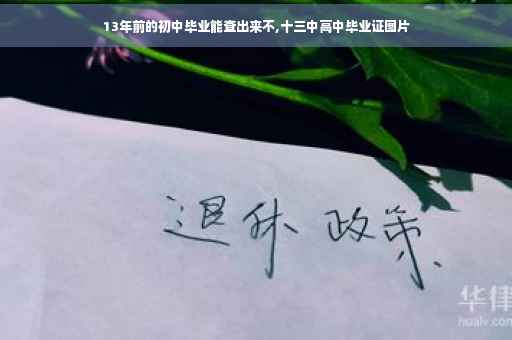 13年前的初中毕业能查出来不,十三中高中毕业证图片
退休 政策
华律
hualv.com